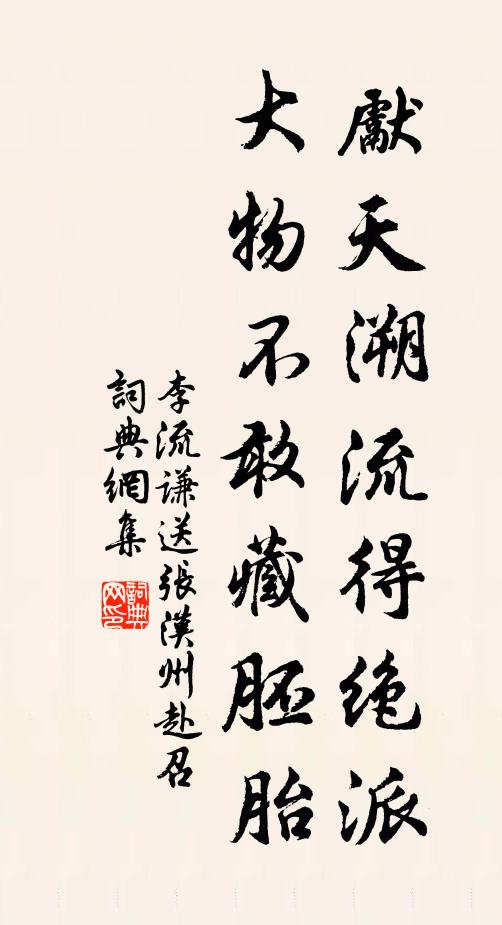 獻天溯流得絶派
大物不敢藏胚胎
李流谦送張漢州赴召
詞典網集
詞典网印